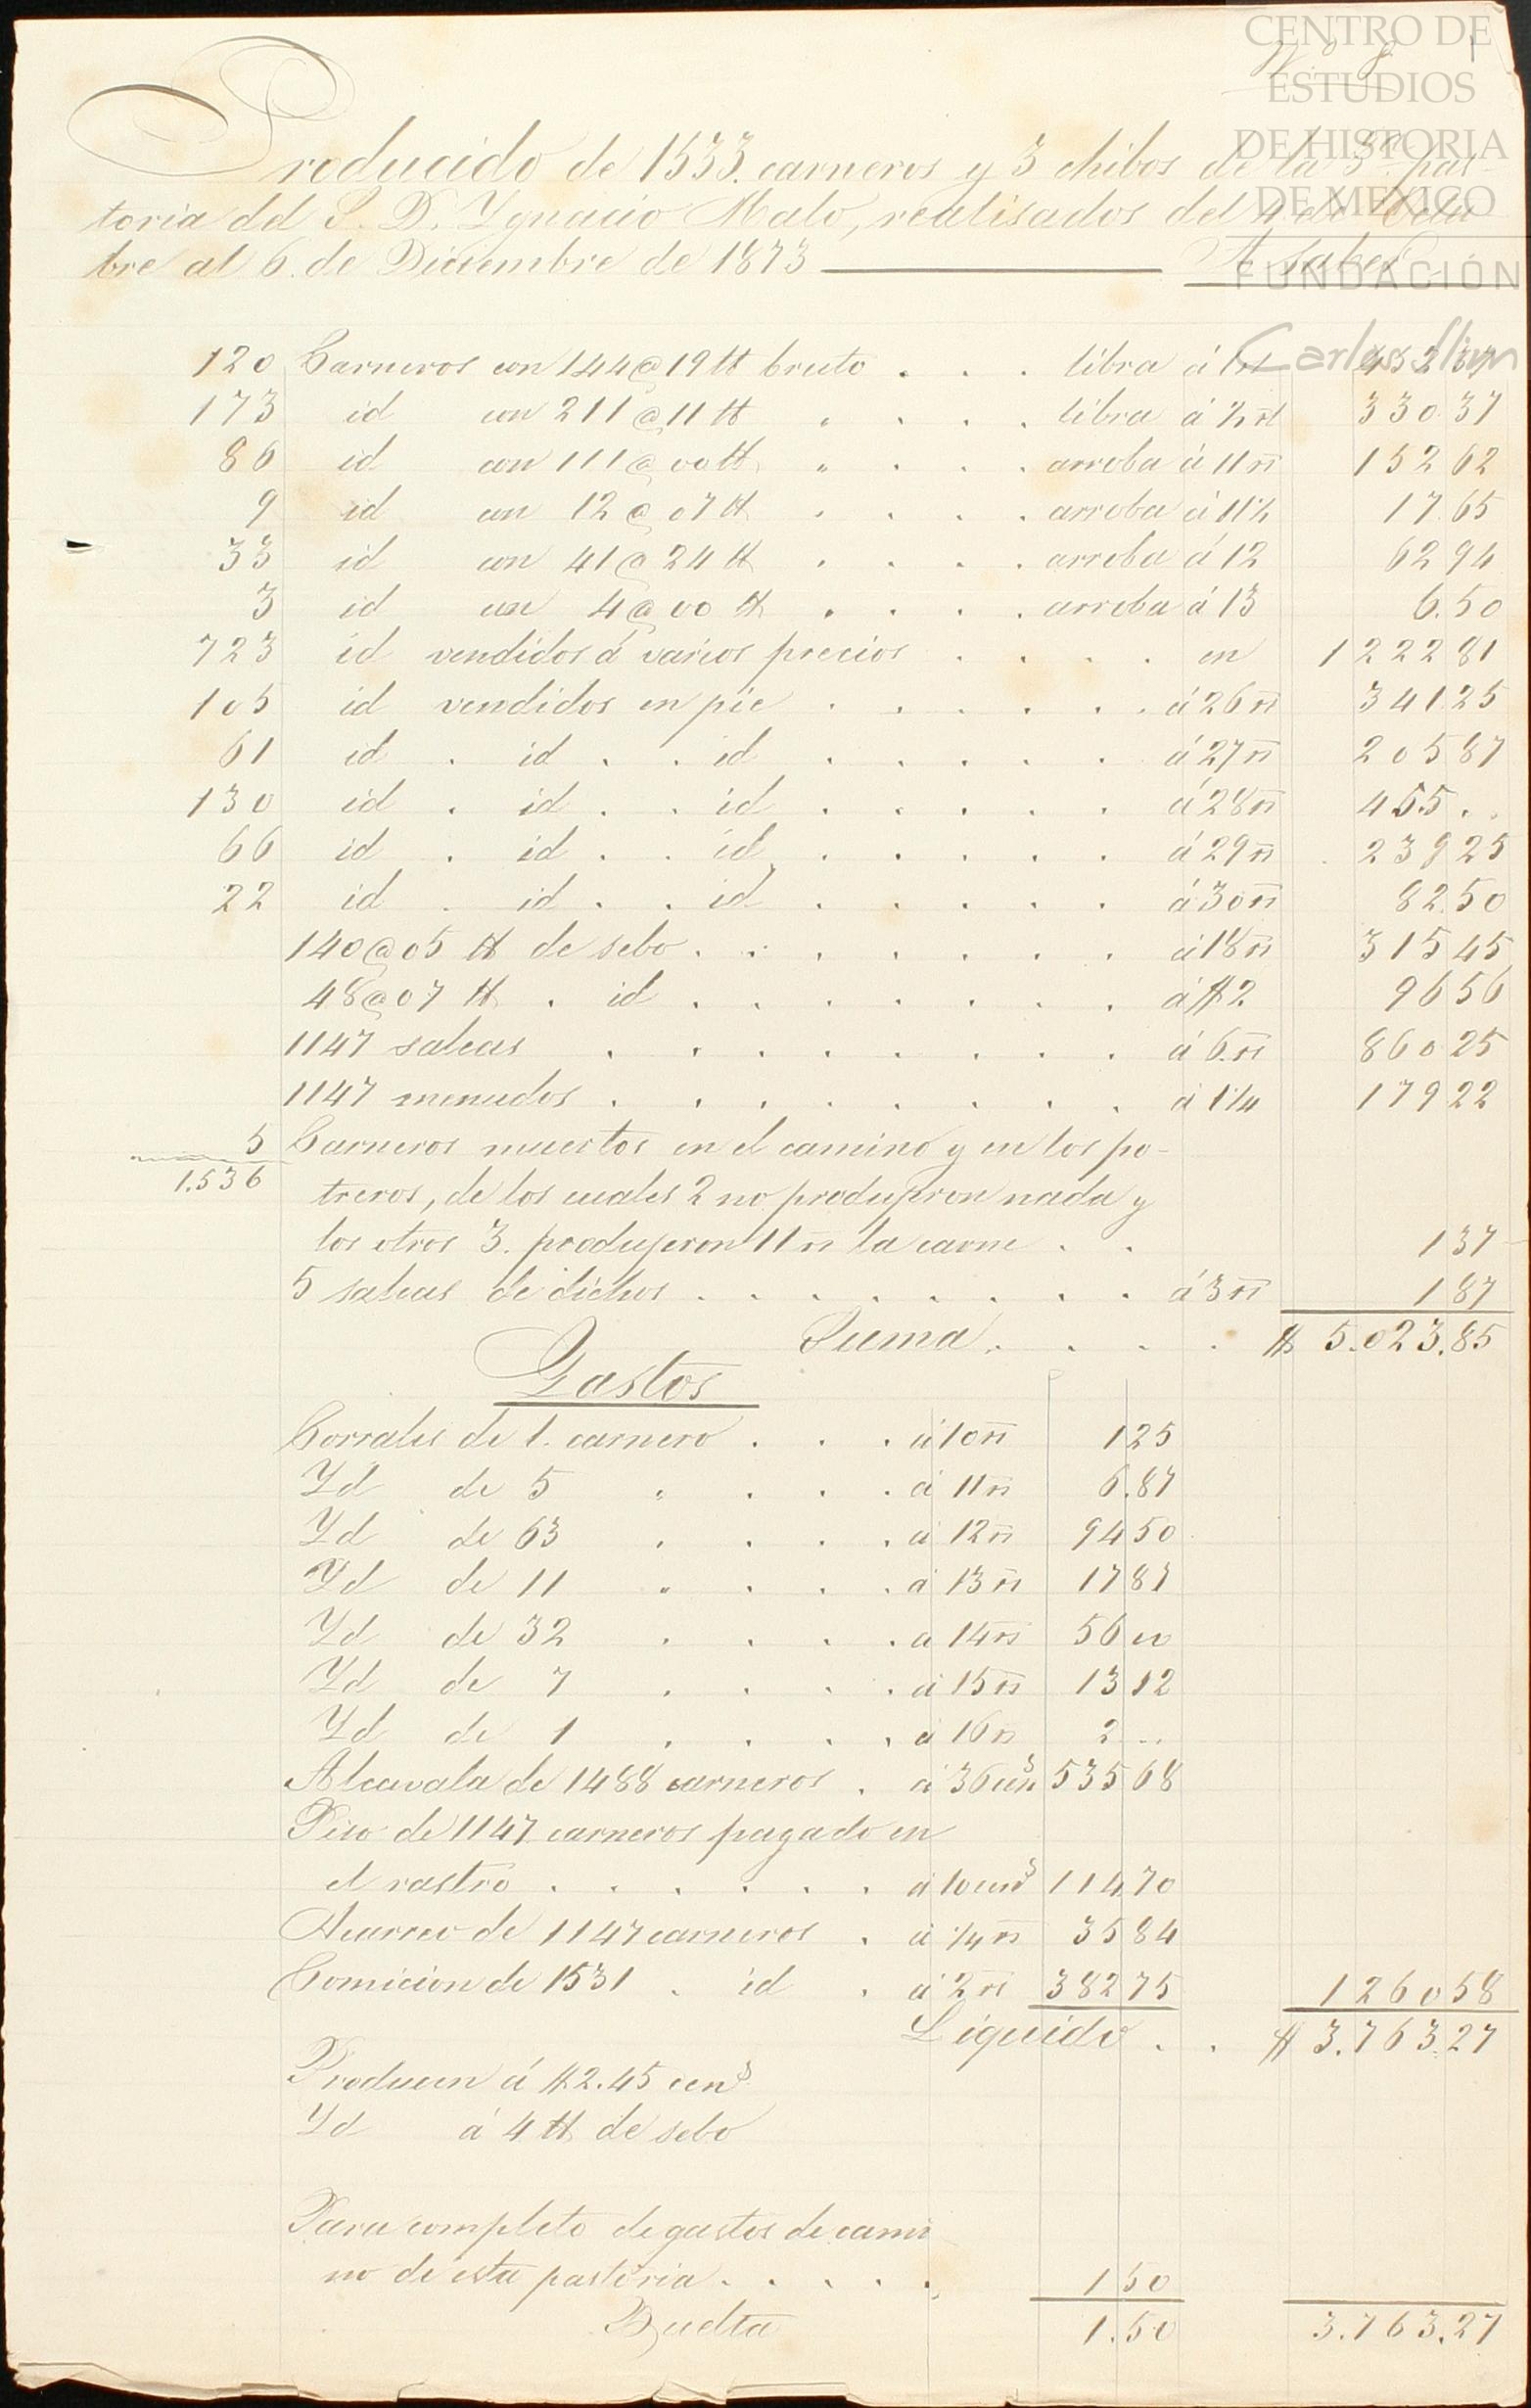 CENTRO DE
ESTUDIOS
DE HISTORIA
DE MEXICO
FUNDACIÓN
Carlos Slim
N.º 8. 1
Producido de 1533. carneros y 3 chibos de la 3ª pas-
toria del S. D. Ygnacio Malo, realisados del 4 de Octu
bre al 6. de Diciembre de 1873 A saber
120 Carneros con 144@19 ℔ bruto . . . libra á 452 37
173 id con 211@11 ℔ " . . . libra á ½ rl 330 37
86 id con 111@00 ℔ " . . . arroba á 11 rs 152 62
9 id con 12@07 ℔ . . . . arroba á 11½ 17.65
33 id con 41@24 ℔ . . . . arroba á 12 62 94
3 id con 4@00 ℔ . . . . arroba á 13 6.50
723 id vendidos á varios precios . . . . en 1222 81
105 id vendidos en pie . . . . . . á 26 rs 341.25
61 id . id . . id . . . . . á 27 rs 205 87
130 id . id . . id . . . . . á 28 rs 455 . .
66 id . id . . id . . . . . á 29 rs 239 25
22 id . id . . id . . . . . á 30 rs 82.50
140@05 ℔ de sebo . . . . . . . á 18 rs 315 45
48@07 ℔ . id . . . . . . . á $ 2. 96 56
1147 saleas . . . . . . . . á 6. rs 860 25
1147 menudos . . . . . . . . á 1¼ 179 22
5 Carneros muertos en el camino y en los po-
1.536 treros, de los cuales 2 no produjeron nada y
los otros 3. produjeron 11 rs la carne . . 1 37
5 saleas de dichos . . . . . . . . á 3 rs 1 87
Suma . . . . $ 5.023.85
Gastos
Corrales de 1. carnero . . . á 10 rs 1 25
Yd de 5 " . . . á 11 rs 6.87
Yd de 63 . . . . á 12 rs 94 50
Yd de 11 " . . . á 13 rs 17 87
Yd de 32 . . . . a 14 rs 56 00
Yd de 7 . . . . á 15 rs 13 12
Yd de 1 . . . . á 16 rs 2 ..
Alcavala de 1488 carneros . á 36 cens 535 68
Piso de 1147 carneros pagado en
el rastro . . . . . . á 10 cens 114 70
Acarreo de 1147 carneros . á ¼ rs 35 84
Comicion de 1531 . id . á 2 rs 382 75 1260 58
Liquido . . $ 3.763.27
Producen á $ 2.45 cens
Yd á 4 ℔ de sebo
Para completo de gastos de cami
no de esta pastoria . . . . . 1 50
Buelta 1.50 3.763.27